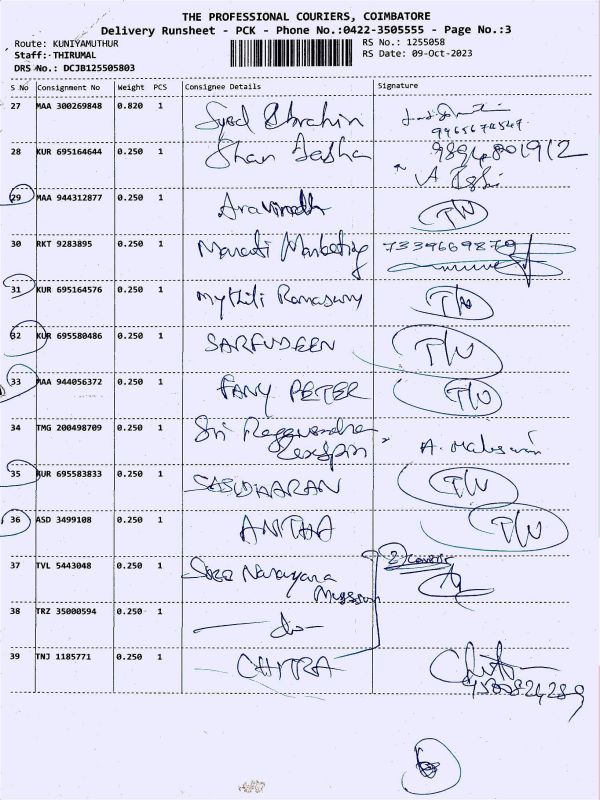 THE PROFESSIONAL COURIERS, COIMBATORE
Delivery Runsheet - PCK - Phone No.:0422-3505555 - Page No.:3
Route: KUNIYAMUTHUR
RS No.: 1255058
Staff: THIRUMAL
RS Date: 09-Oct-2023
DRS No.: DCJB125505803
S No Consignment No Weight PCS Consignee Details Signature
27 MAA 300269848 0.820 1 Syed Ibrahim
9965678549
28 KUR 695164644 0.250 1 Shan Basha 9894801912
29 MAA 944312877 0.250 1 Aravinodh T/W
30 RKT 9283895 0.250 1 Maruti Marketing 7339669879
31 KUR 695164576 0.250 1 Mythili Ramaswy T/W
32 KUR 695580486 0.250 1 SARFUDEEN T/W
33 MAA 944056372 0.250 1 FANY PETER T/W
34 TMG 200498709 0.250 1 Sri Ragavendra
Texspin A. Maheswari
35 KUR 695583833 0.250 1 SASIDHARAN T/W
36 ASD 3499108 0.250 1 ANITHA T/W
37 TVL 5443048 0.250 1 Sree Narayana
38 TRZ 35000594 0.250 1 — do —
39 TNJ 1185771 0.250 1 CHITRA Chitra